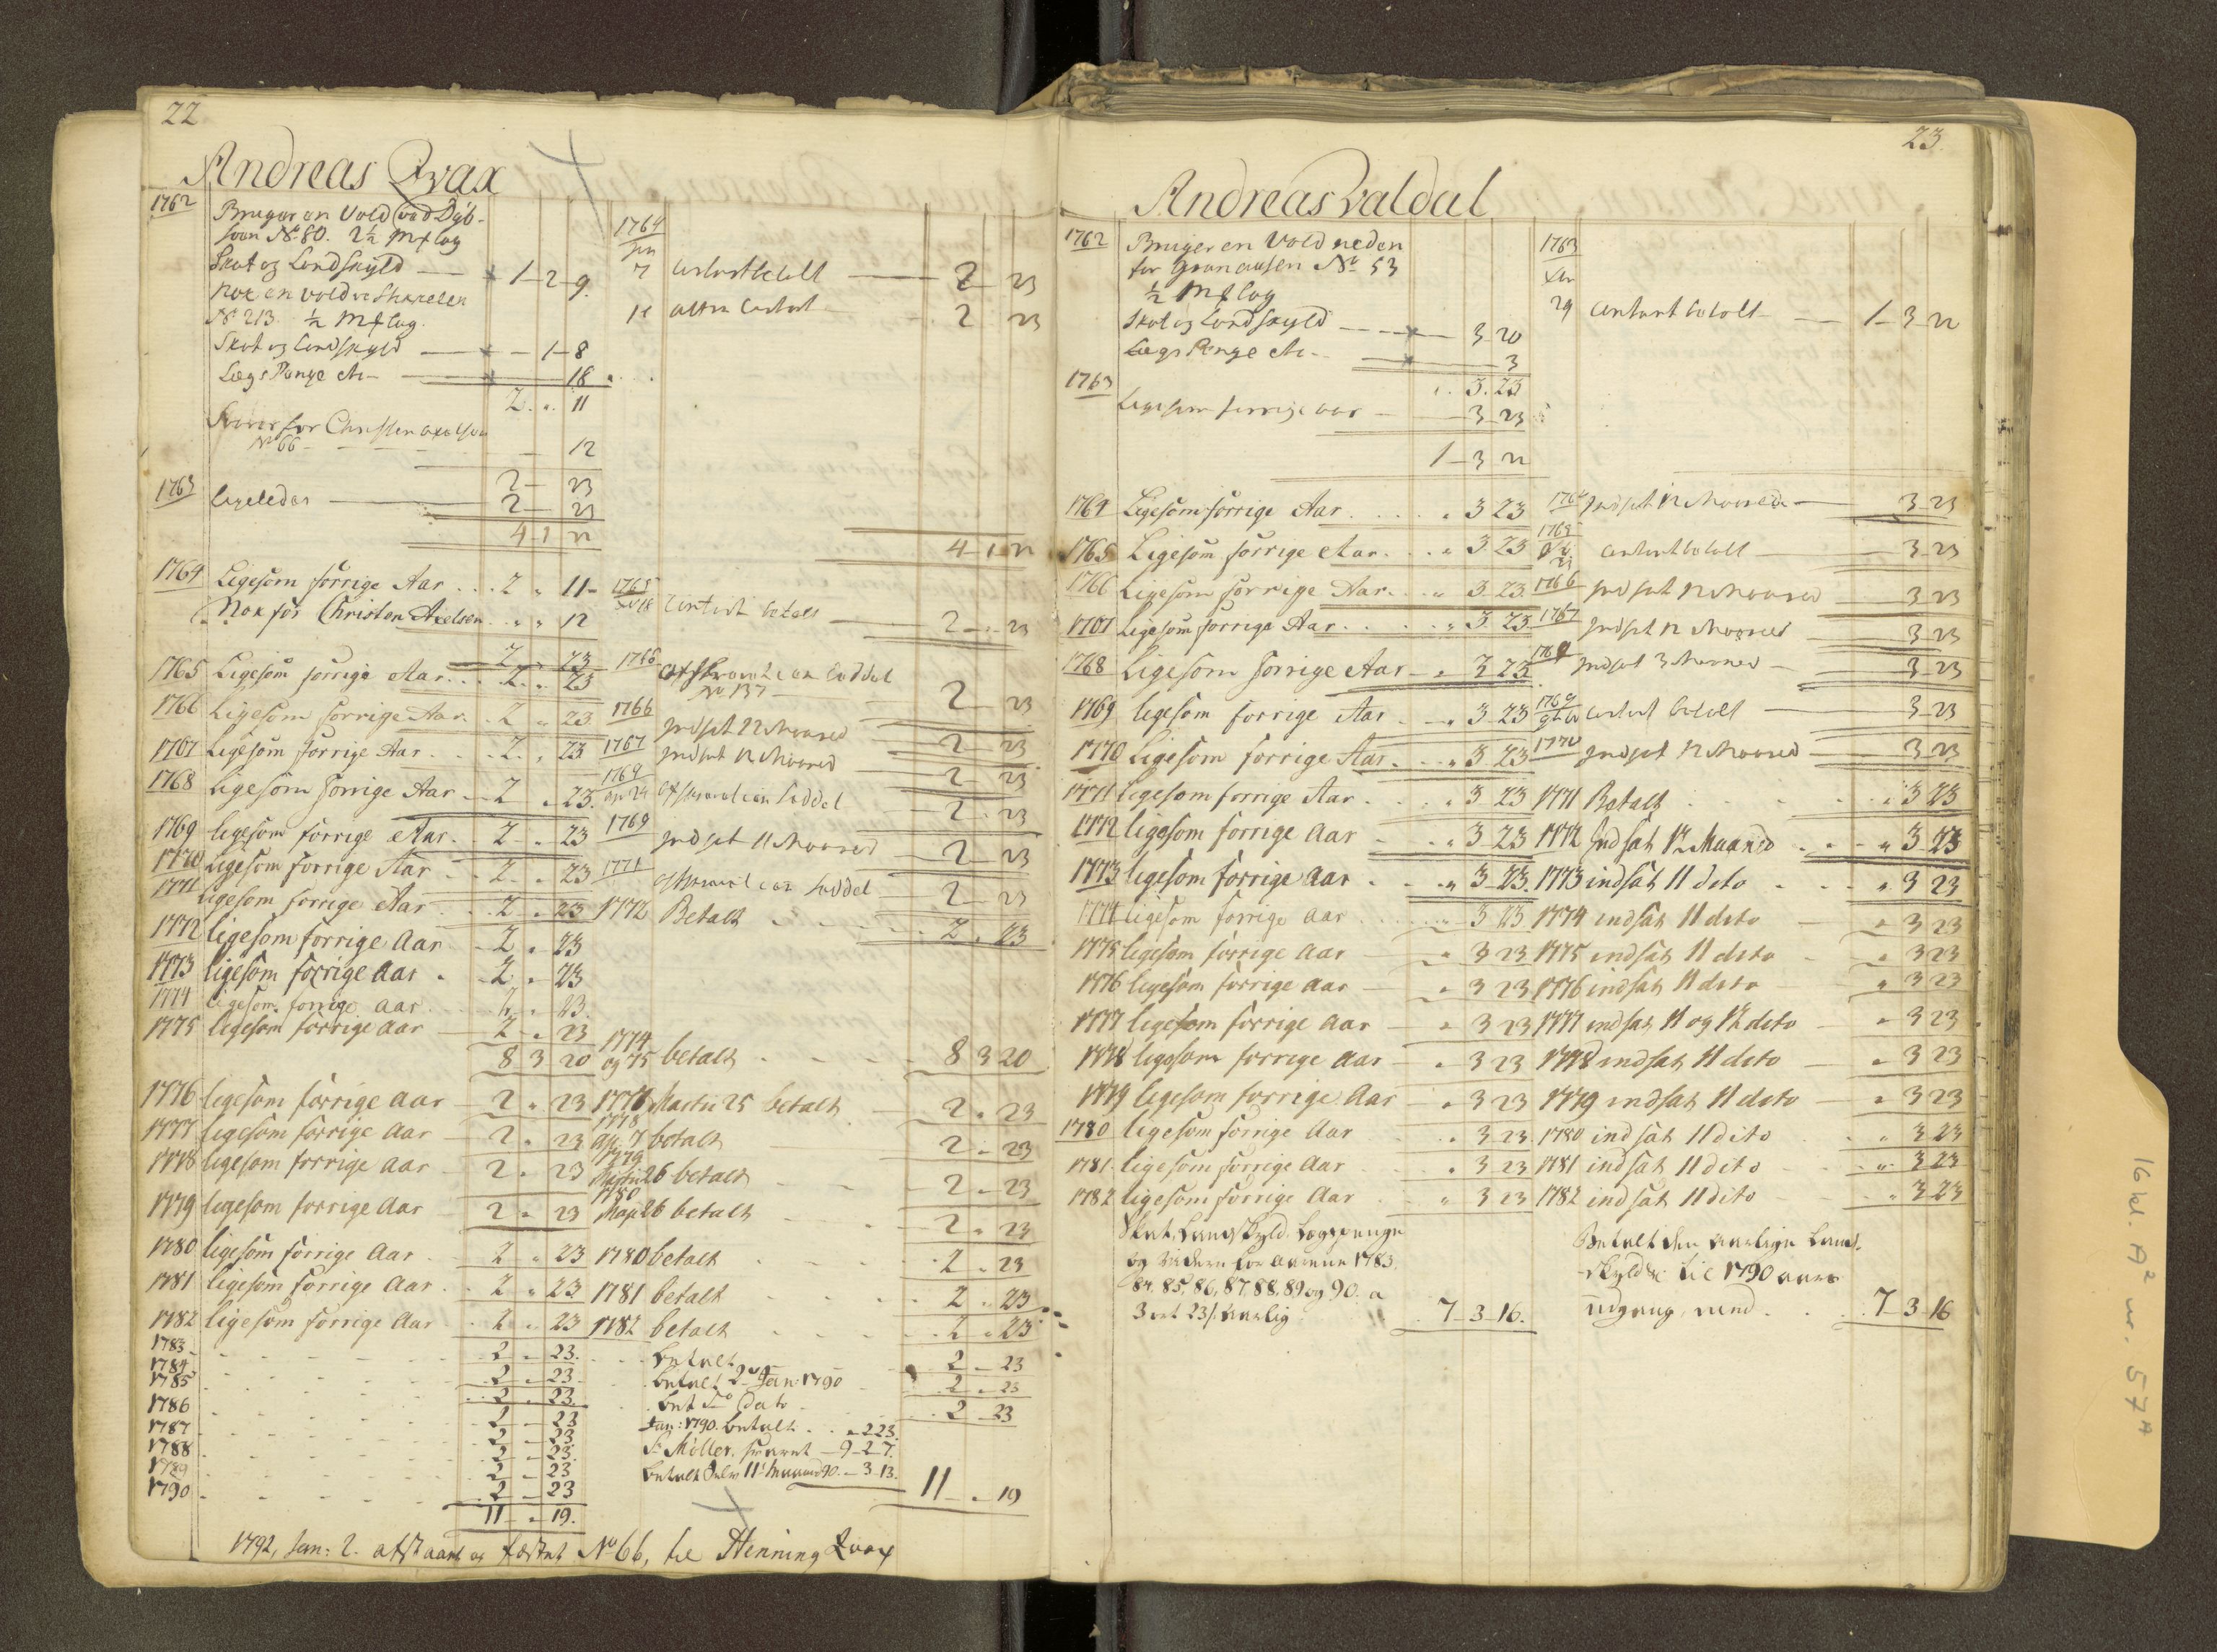 22
Andreas Qvax
1762
Bruger en Vold ved Dyb-
No 80. 2½ Mk lag
Skat og Landskyld — 1-2-9.
Nok en vold
No 213. ½ Mk lag.
Skat og Landskyld — 1-8
Lægs Penge etc — 18
2 " 11
Svarer for Christen Axelsen
No 66 — 12
2 — 23
1763 ligeledes — 2 — 23
4-1-22
1764 Ligesom forrige Aar . . . 2 " 11
Nok for Christen Axelsen . " " 12
2 " 23
1765 Ligesom forrige Aar . . . 2 " 23
1766 Ligesom forrige Aar . 2 " 23
1767 Ligesom forrige Aar . . 2 " 23
1768 Ligesom forrige Aar — 2 " 23.
1769 ligesom forrige Aar . 2 " 23
1770 Ligesom forrige Aar . . 2 " 23
1771 ligesom forrige Aar . 2 " 23
1772 ligesom forrige Aar . 2 " 23
1773 ligesom forrige Aar . 2 " 23
1774 ligesom forrige aar . 2 " 23.
1775 ligesom forrige aar — 2 " 23
8 3 20
1776 ligesom forrige aar — 2 " 23
1777 ligesom forrige Aar — 2 " 23
1778 ligesom forrige Aar — 2 " 23
1779 ligesom forrige Aar — 2 " 23
1780 ligesom forrige Aar . 2 " 23
1781 ligesom forrige Aar . 2 " 23
1782 ligesom forrige Aar . 2 " 23
1783 — 2 — 23.
1784 — 2 — 23
1785 2 — 23.
1786 2 — 23
1787 2 — 23
1788 2 — 23.
1789 2 — 23
1790 2 — 23
11 — " 19.
1764
Jan
7 contant betalt — 2 — 23
2 23
4-1-22
1765
18 Contant betalt — 2 — 23
1766 afskrevet i en Seddel
No 137 — 2 — 23
1766 Indsat 12 Maaned — 2 — 23
1767 Indsat 12 Maaned — 2 — 23
1769
afskrevet i en Seddel 2 — 23
1769 Indsat 11 Maaned — 2 — 23
1771 afskrevet i en Seddel — 2 — 23
1772 Betalt . . . 2 . 23
1774
og 75 betalt . . . 8 3 20
1777 Martii 25 betalt — 2 " 23
1778
Ap. 7 betalt — 2 — 23
1779
Martii 26 betalt . . 2 — 23
1780
26 betalt . . 2 " 23
1780 betalt . . . 2 . 23
1781 betalt . . . 2 . 23
1782 betalt . . . 2 . 23
Betalt 2 — 23
betalt 2 Jan: 1790 — 2 — 23
bet dato . 2 — 23
Jan: 1790. betalt . . 2 23.
S. Møller, svaret — 9-2-7.
betalt 11t Maaned 90. — 3-13.
11 — " 19
1792, Jan: 2. afstaaet og fæstet No 66, til Henning Qvax
23.
Andreas Valdal
1762 Bruger en Vold neden
for No 53
½ Mk lag
Skat og Landskyld — 3-20
Lægs Penge etc — 3
" 3. 23
1763
Ligesom forrige aar — 3 23
1-3-22
1764 Ligesom forrige Aar . . . " 3 23
1765 Ligesom forrige Aar . . " 3 23
1766 Ligesom forrige Aar . . " 3 23
1767 Ligesom forrige Aar . . . " 3 23
1768 Ligesom forrige Aar — " 3 23
1769 ligesom forrige Aar — " 3 23
1770 Ligesom forrige Aar . . " 3 23
1771 ligesom forrige Aar . . . " 3 23
1772 ligesom forrige Aar — " 3 23
1773 ligesom forrige Aar . . " 3 23.
1774 ligesom forrige aar . . . " 3 23
1775 ligesom forrige Aar — " 3 23
1776 ligesom forrige Aar — " 3 23
1777 ligesom forrige Aar — " 3 23
1778 ligesom forrige Aar — " 3 23
1779 ligesom forrige Aar — " 3 23
1780 ligesom forrige Aar . " 3 23.
1781 ligesom forrige Aar " 3 23
1782 ligesom forrige Aar " 3 23
Skat, Landskyld, Lægspenge
og videre for aarene 1783.
84, 85, 86, 87, 88, 89 og 90. a
3 ort 23 s. aarlig . 7-3-16.
1763
Xbr
29 Contant betalt — 1-3-22
1764 Indsat 12 Maaned — 3-23
1765
Contant betalt — 3-23
1766 Indsat 12 Maaned — 3 23
1767 Indsat 12 Maaned — 3 23
1768 Indsat 3 Maaned — 3-23
1769
Contant betalt — 3-23
1770 Indsat 12 Maaned — 3-23
1771 Betalt . . . " 3 23
1772 Indsat 12 Maaned . . — " 3-23
1773 indsat 11 deto . . . " 3 23
1774 indsat 11 deto — " 3 23
1775 indsat 11 deto — " 3 23
1776 indsat 11 deto — " 3 23
1777 indsat 11 og 12 deto — " 3 23
1778 indsat 11 deto — " 3 23
1779 indsat 11 deto — " 3 23
1780 indsat 11 dito . . " 3 23
1781 indsat 11 dito . . " 3 23
1782 indsat 11 dito . . " 3 23
Betalt den aarlige Land-
skyld &c til 1790 aars
udgang, med . . . 7-3-16
16 kl. A² nr. 57 A